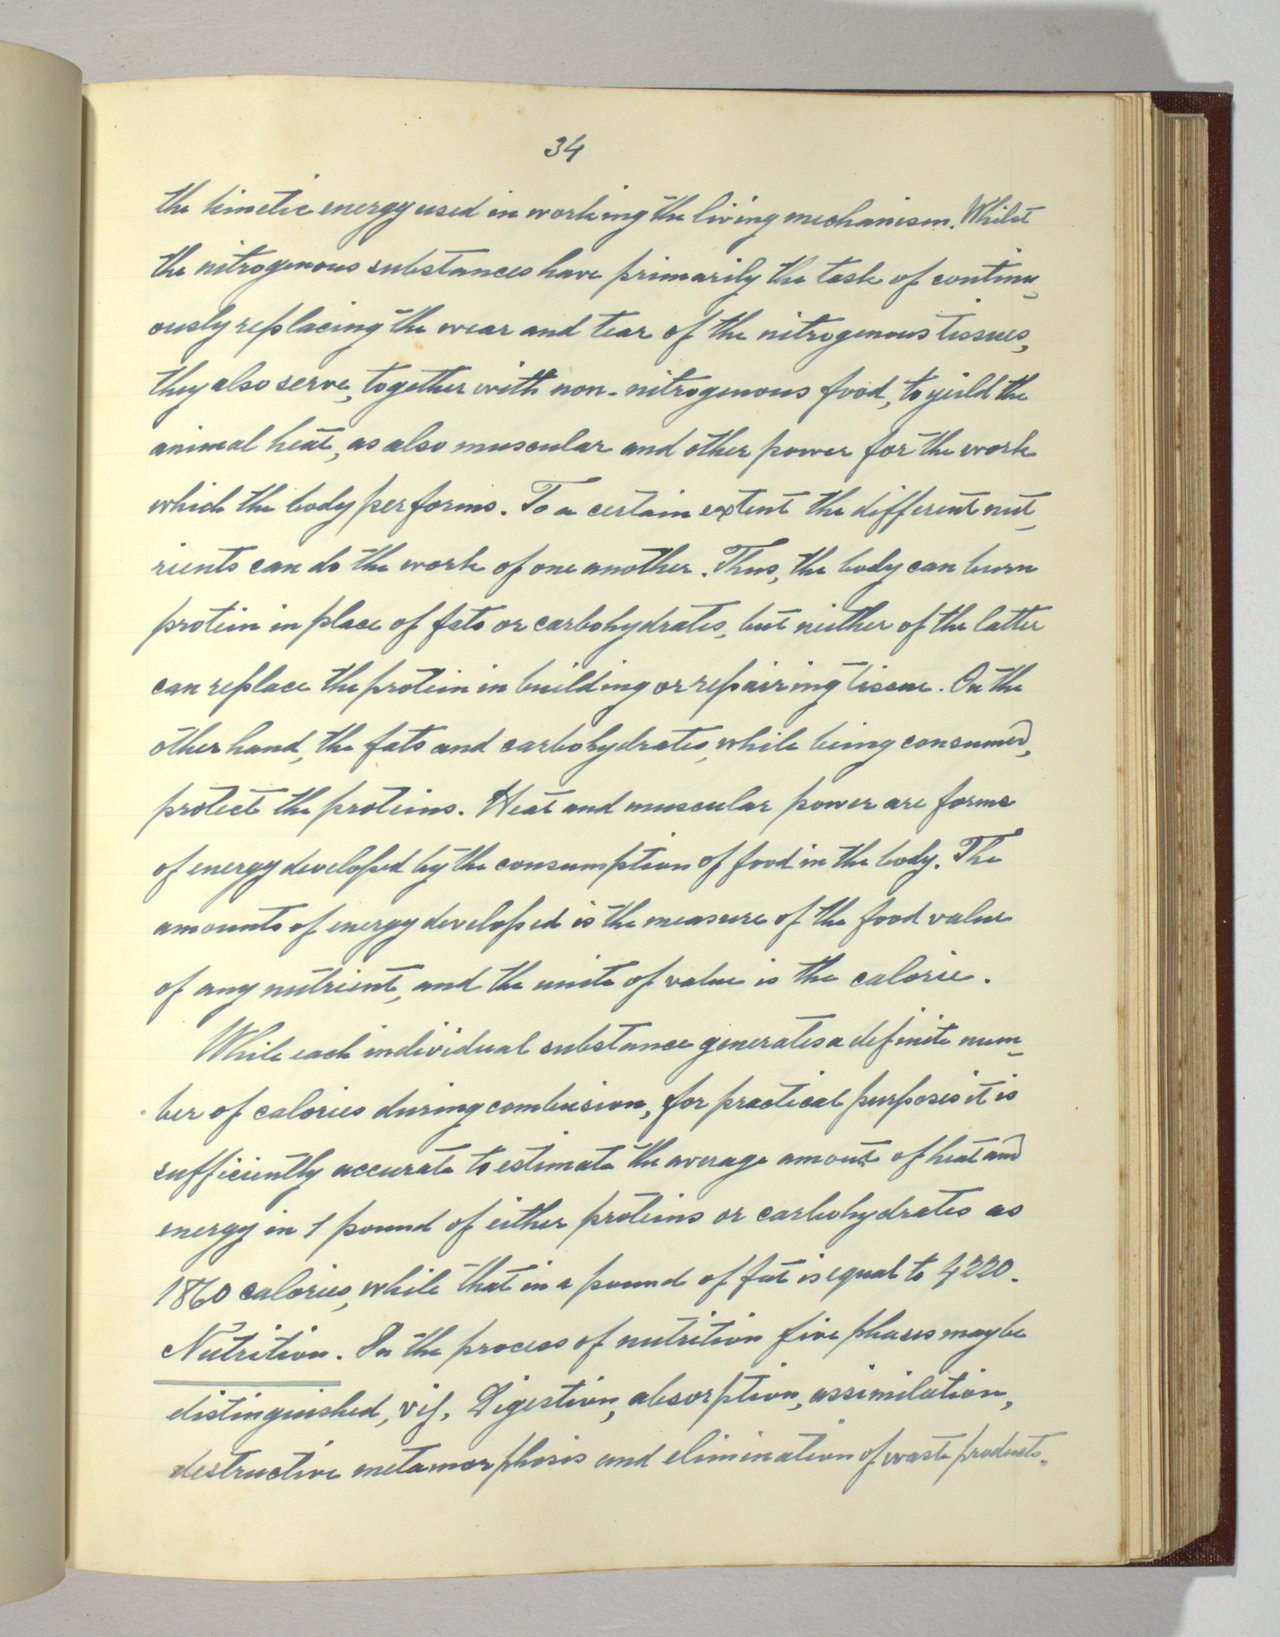 34
the kinetic energy used in working the living mechanism. Whilst
the nitrogenous substances have primarily the task of continu-
ously replacing the wear and tear of the nitrogenous tissues,
they also serve, together with non-nitrogenous food, to yield the
animal heat, as also muscular and other power for the work
which the body performs. To a certain extent the different nut-
rients can do the work of one another. Thus, the body can burn
protein in place of fats or carbohydrates, but neither of the latter
can replace the protein in building or repairing tissue. On the
other hand, the fats and carbohydrates, while being consumed,
protect the proteins. Heat and muscular power are forms
of energy developed by the consumption of food in the body. The
amounts of energy developed is the measure of the food value
of any nutrient, and the unite of value is the calorie.
While each individual substance generates a definite num-
ber of calories during combusion, for practical purposes it is
sufficiently accurate to estimate the average amount of heat and
energy in 1 pound of either proteins or carbohydrates as
1860 calories, while that in a pound of fat is equal to 4220.
Nutrition. In the process of nutrition five phases may be
distinguished, viz. Digestion, absorption, assimilation,
destructive metamorphosis and elimination of waste products.